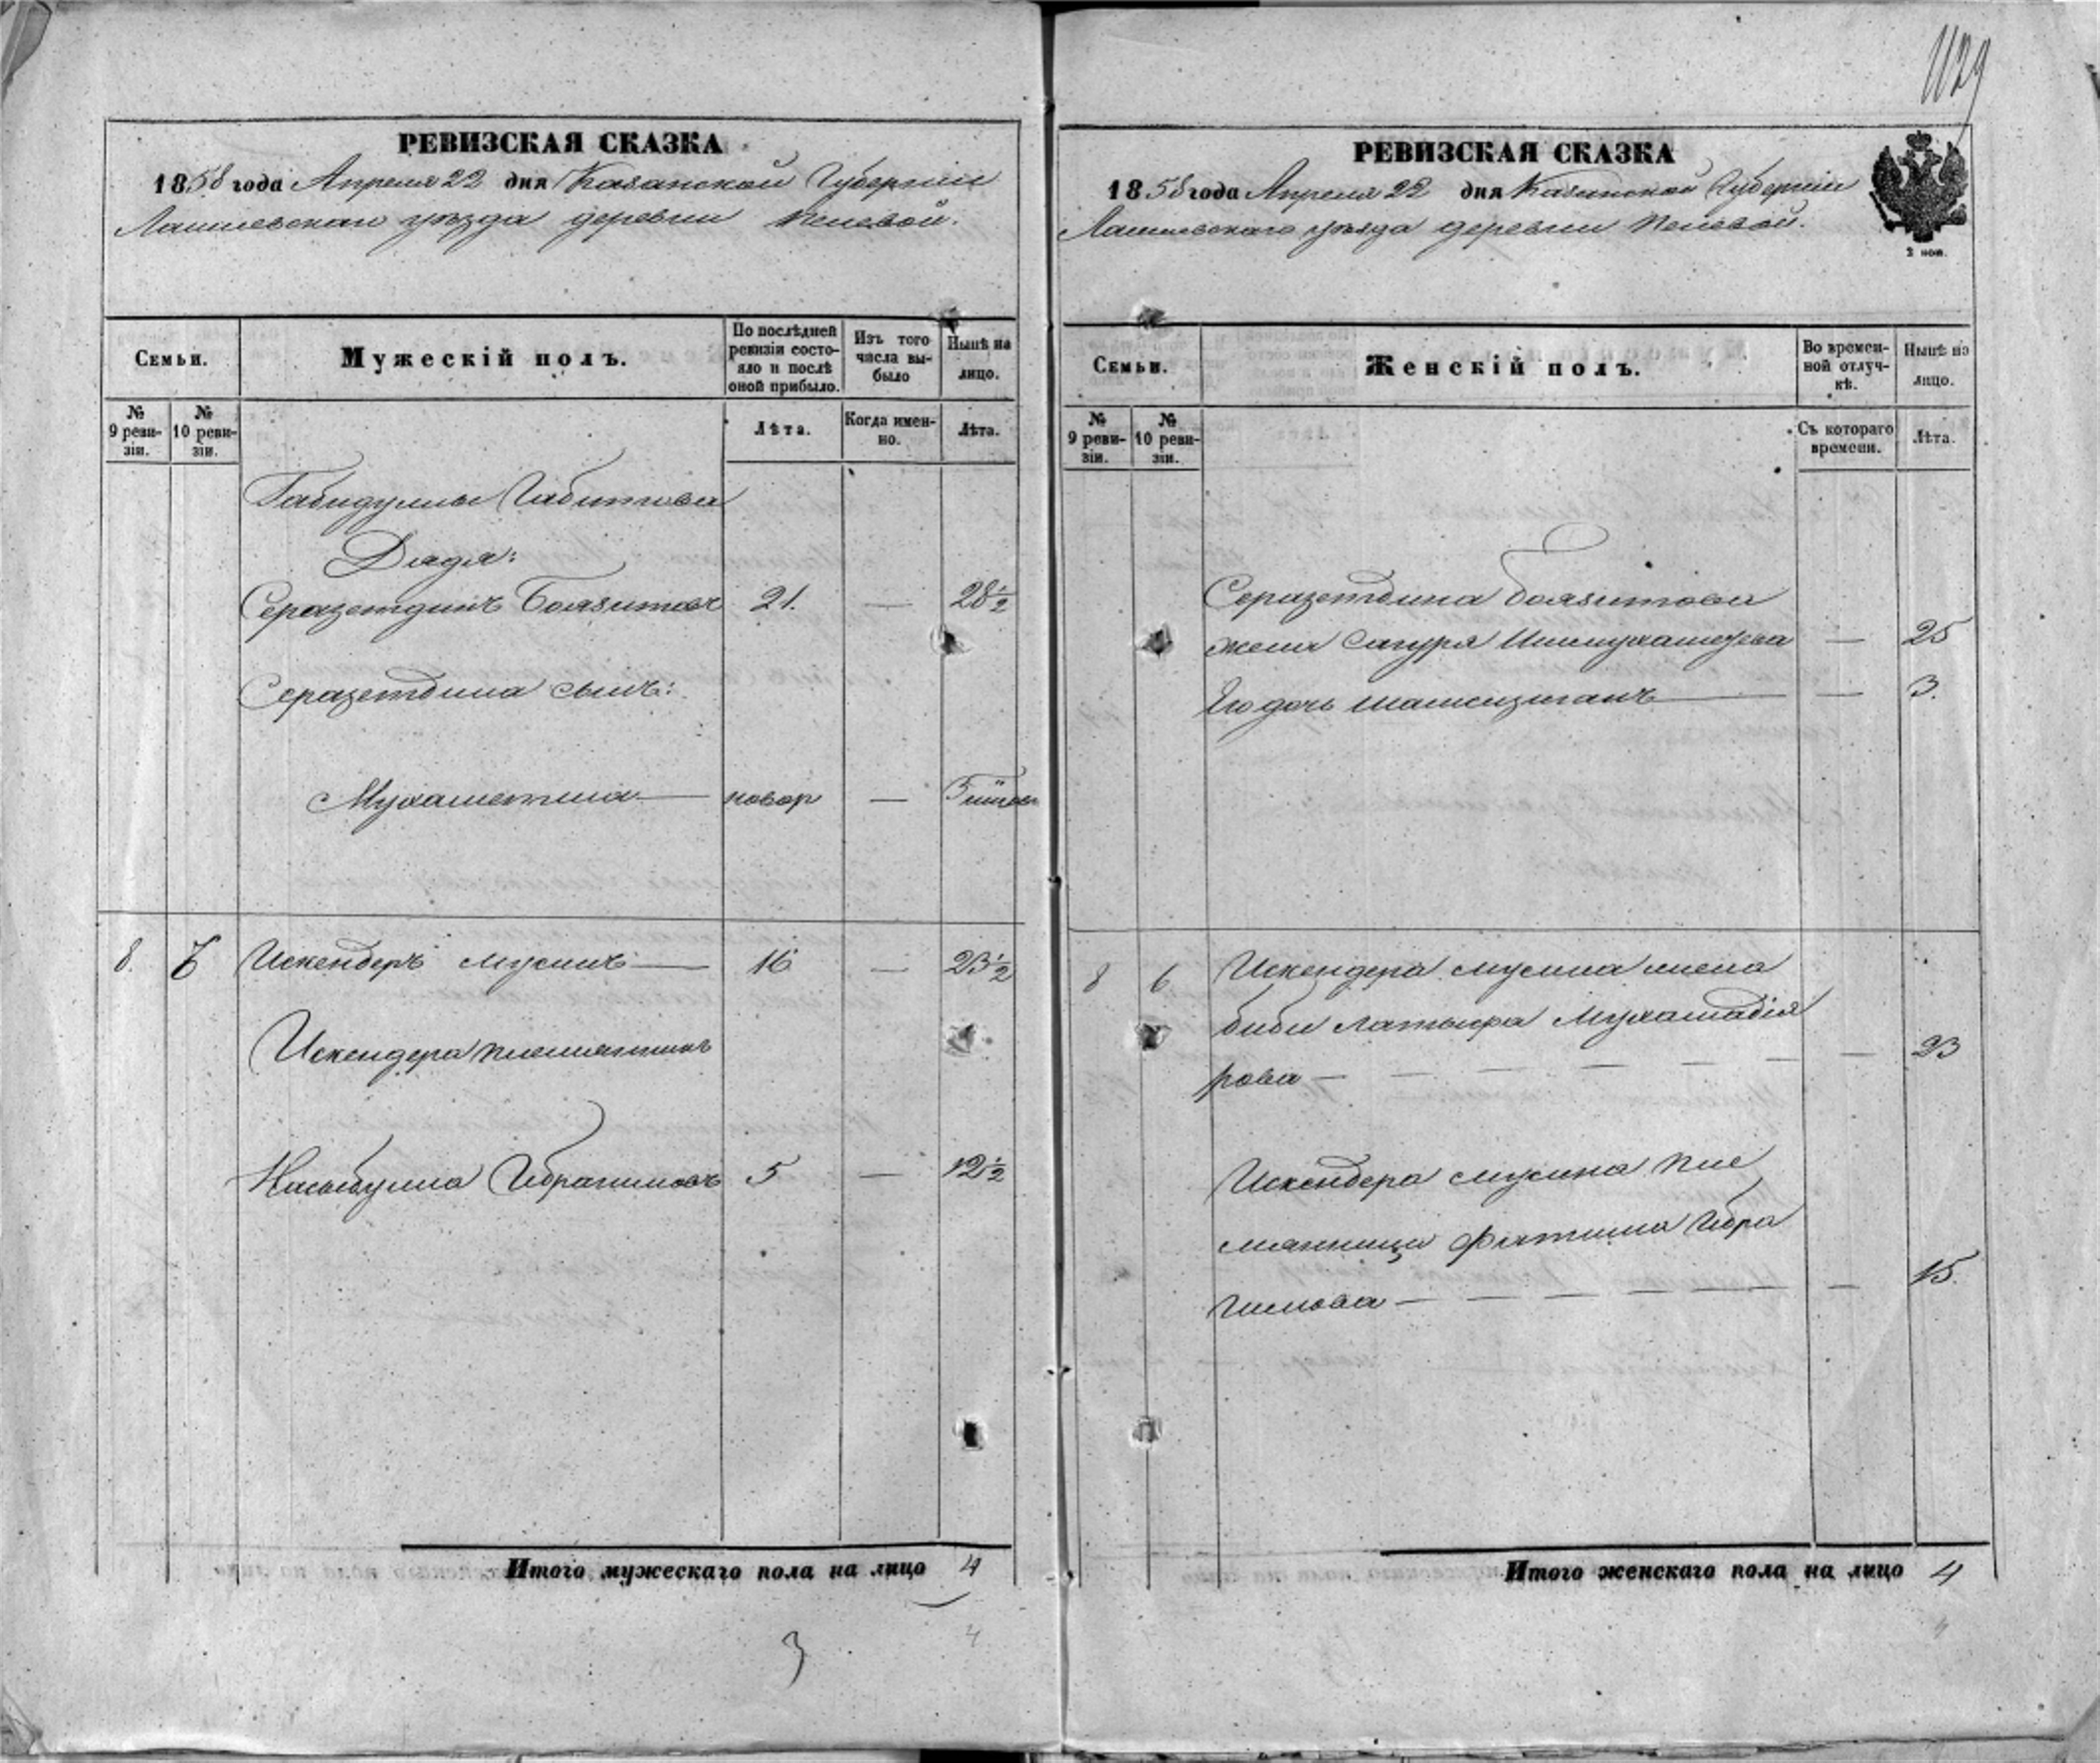 1129
РЕВИЗСКАЯ СКАЗКА
1858 года Апреля 22 дня Казанской Губернии
Лаишевскаго уѣзда деревни
Семьи.
Мужескій полъ.
По послѣдней ревизіи состояло и послѣ оной прибыло.
Изъ того числа выбыло
Нынѣ на лицо.
№ 9 ревизіи.
№ 10 ревизіи.
Лѣта.
Когда именно.
Лѣта.
Габидуллы Габитова
Дядя:
Серазетдинъ Боязитовъ 21. — 28½
Серазетдина сынъ:
Мухаметша — новор —
8. 6 Искендеръ Мусинъ — 16 — 23½
Искендера племянникъ
Насыбулла Ибрагимовъ 5 — 12½
Итого мужескаго пола на лицо 4
3 4
РЕВИЗСКАЯ СКАЗКА
1858 года Апреля 22 дня Казанской Губерніи
Лаишевскаго уѣзда деревни
2 коп.
Семьи.
Женскій полъ.
Во временной отлучкѣ.
Нынѣ на лицо.
№ 9 ревизіи.
№ 10 ревизіи.
Съ котораго времени.
Лѣта.
Серазетдина Боязитова
жена Сагуря Ишмухаметева — 25
Его дочь — — 3.
8 6 Искендера Мусина жена
Биби Латыфа Мухамадія
рова — — — — — — — 23
Искендера Мусина пле
мянница Фатима Ибра
гимова — — — — — — — 15.
Итого женскаго пола на лицо 4